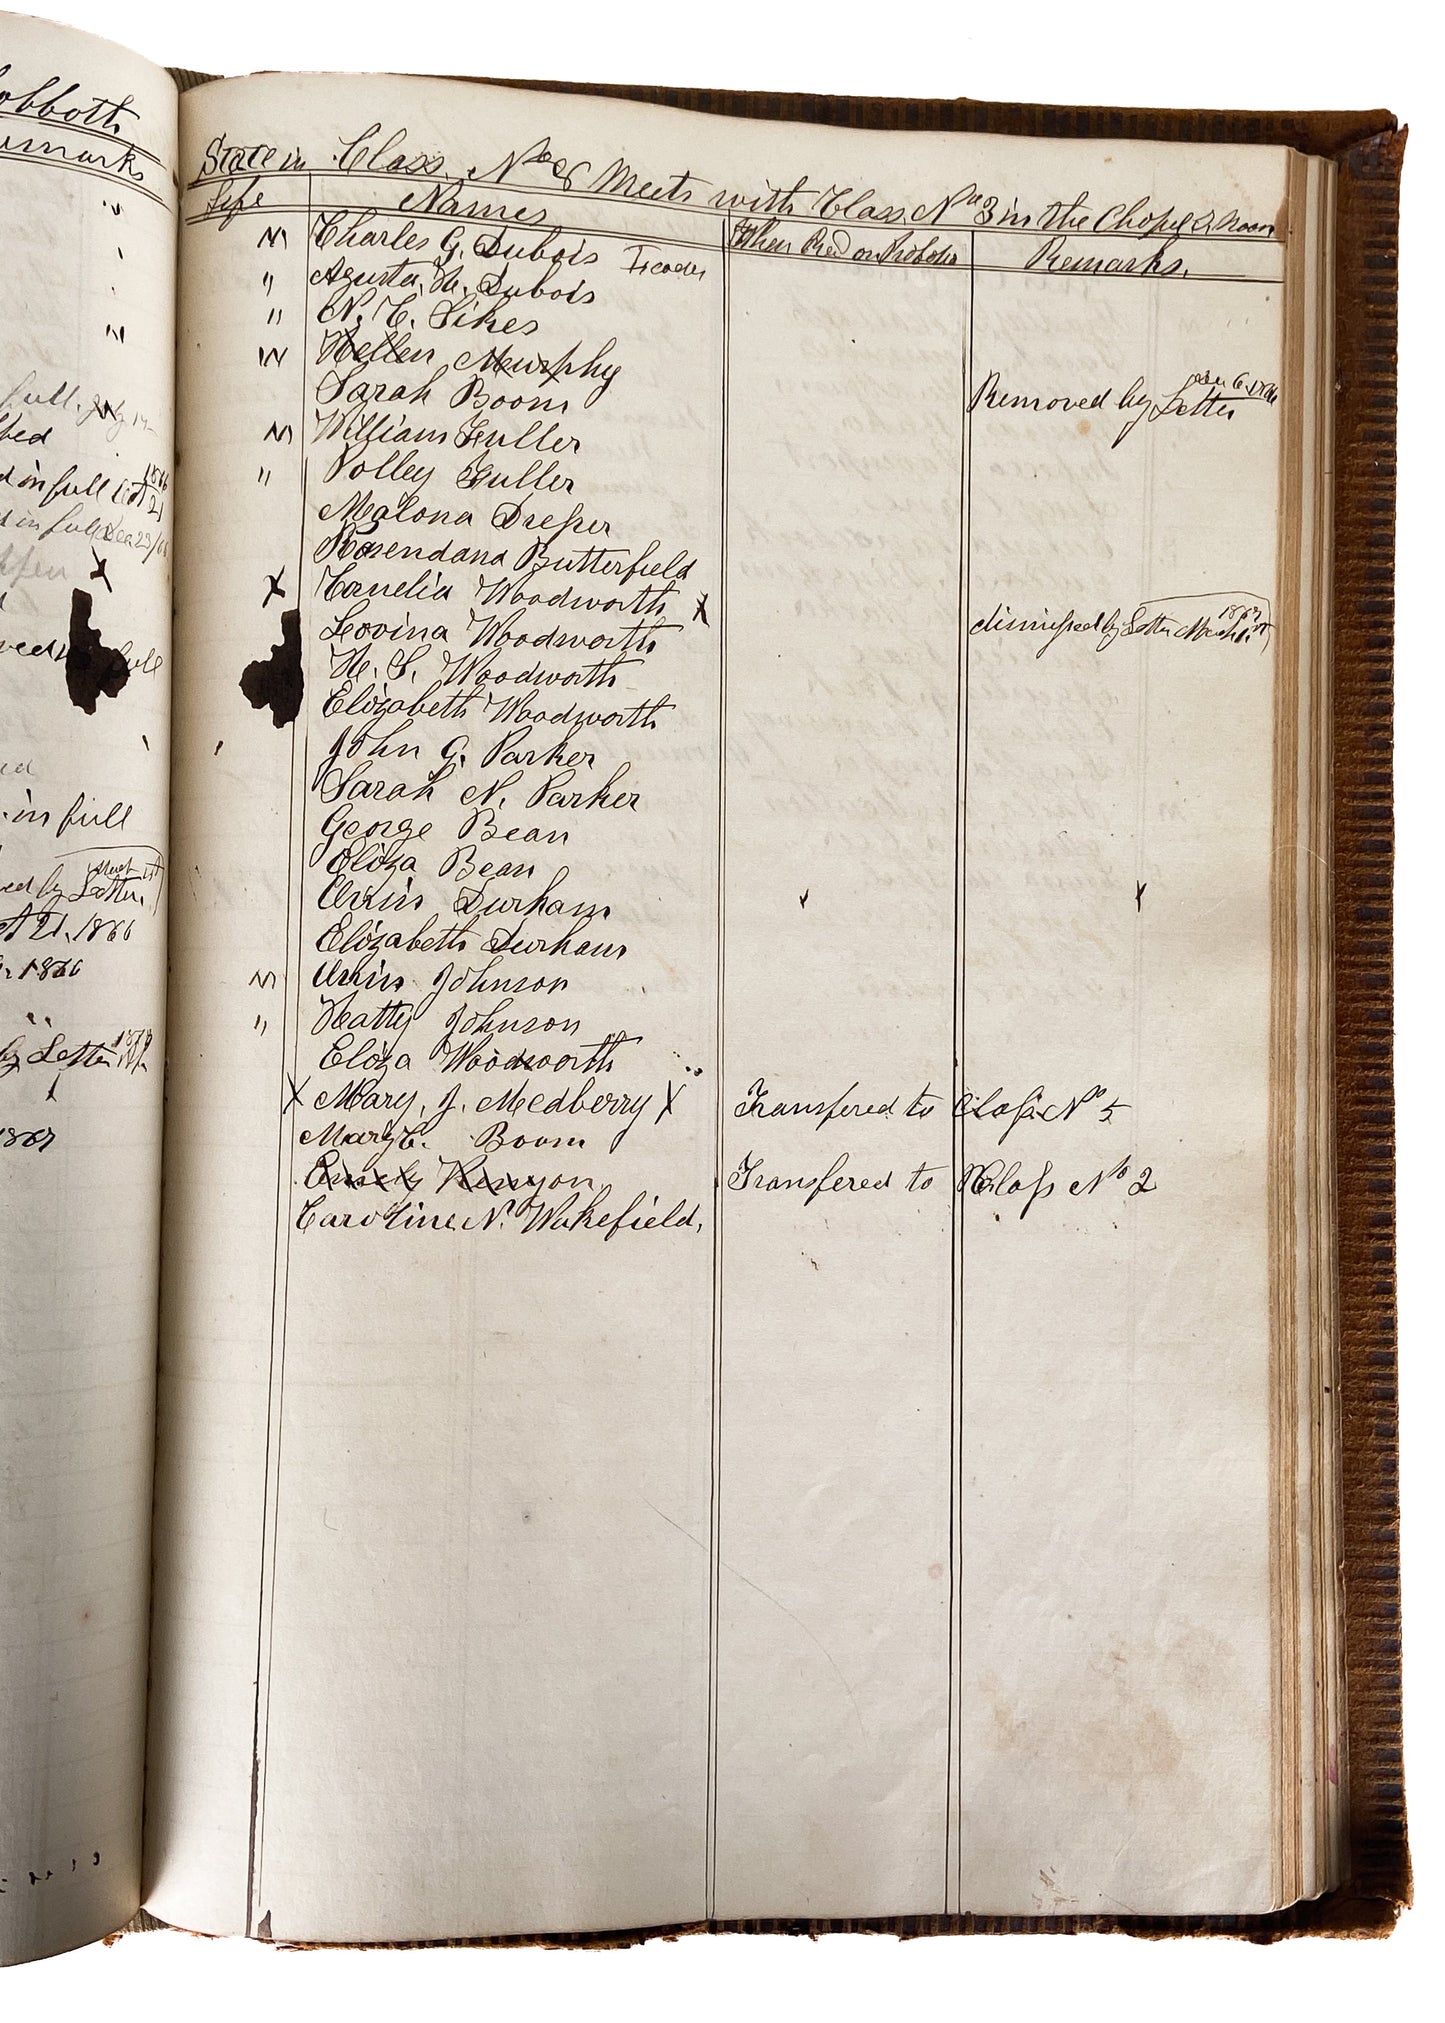 obboth
emarks
full
ted
d in full Oct 21 1866
d in full Dec 23/66
full
ed
in full
ed by Letter
Oct 21, 1866
1866
by Letter
1867
State in Life
Class No 8 Meets with Class No 3 in the Chapel 2, Noon
Names When Recd on Probation Remarks.
M Charles G. Dubois Leader
" Agusta, H. Dubois
" N. C. Sikes
M Hellen Murphy
Sarah Boom Removed by Letter
M William Fuller
" Polley Fuller
Malona Dreper
Rosendana Butterfield
X Cornelia Woodworth X dismissed by Letter March 1867
Lovina Woodworth
H. S. Woodworth
Elizabeth Woodworth
John G. Parker
Sarah N. Parker
George Bean
Eliza Bean
Orrin Durham
Elizabeth Durham
M Orrin Johnson
" Hatty Johnson
Eliza Woodworth
X Mary, J. Medberry X Transfered to Class No 5
Mary C. Boom
Emely Kenyon Transfered to Class No 2
Caroline N. Wakefield,